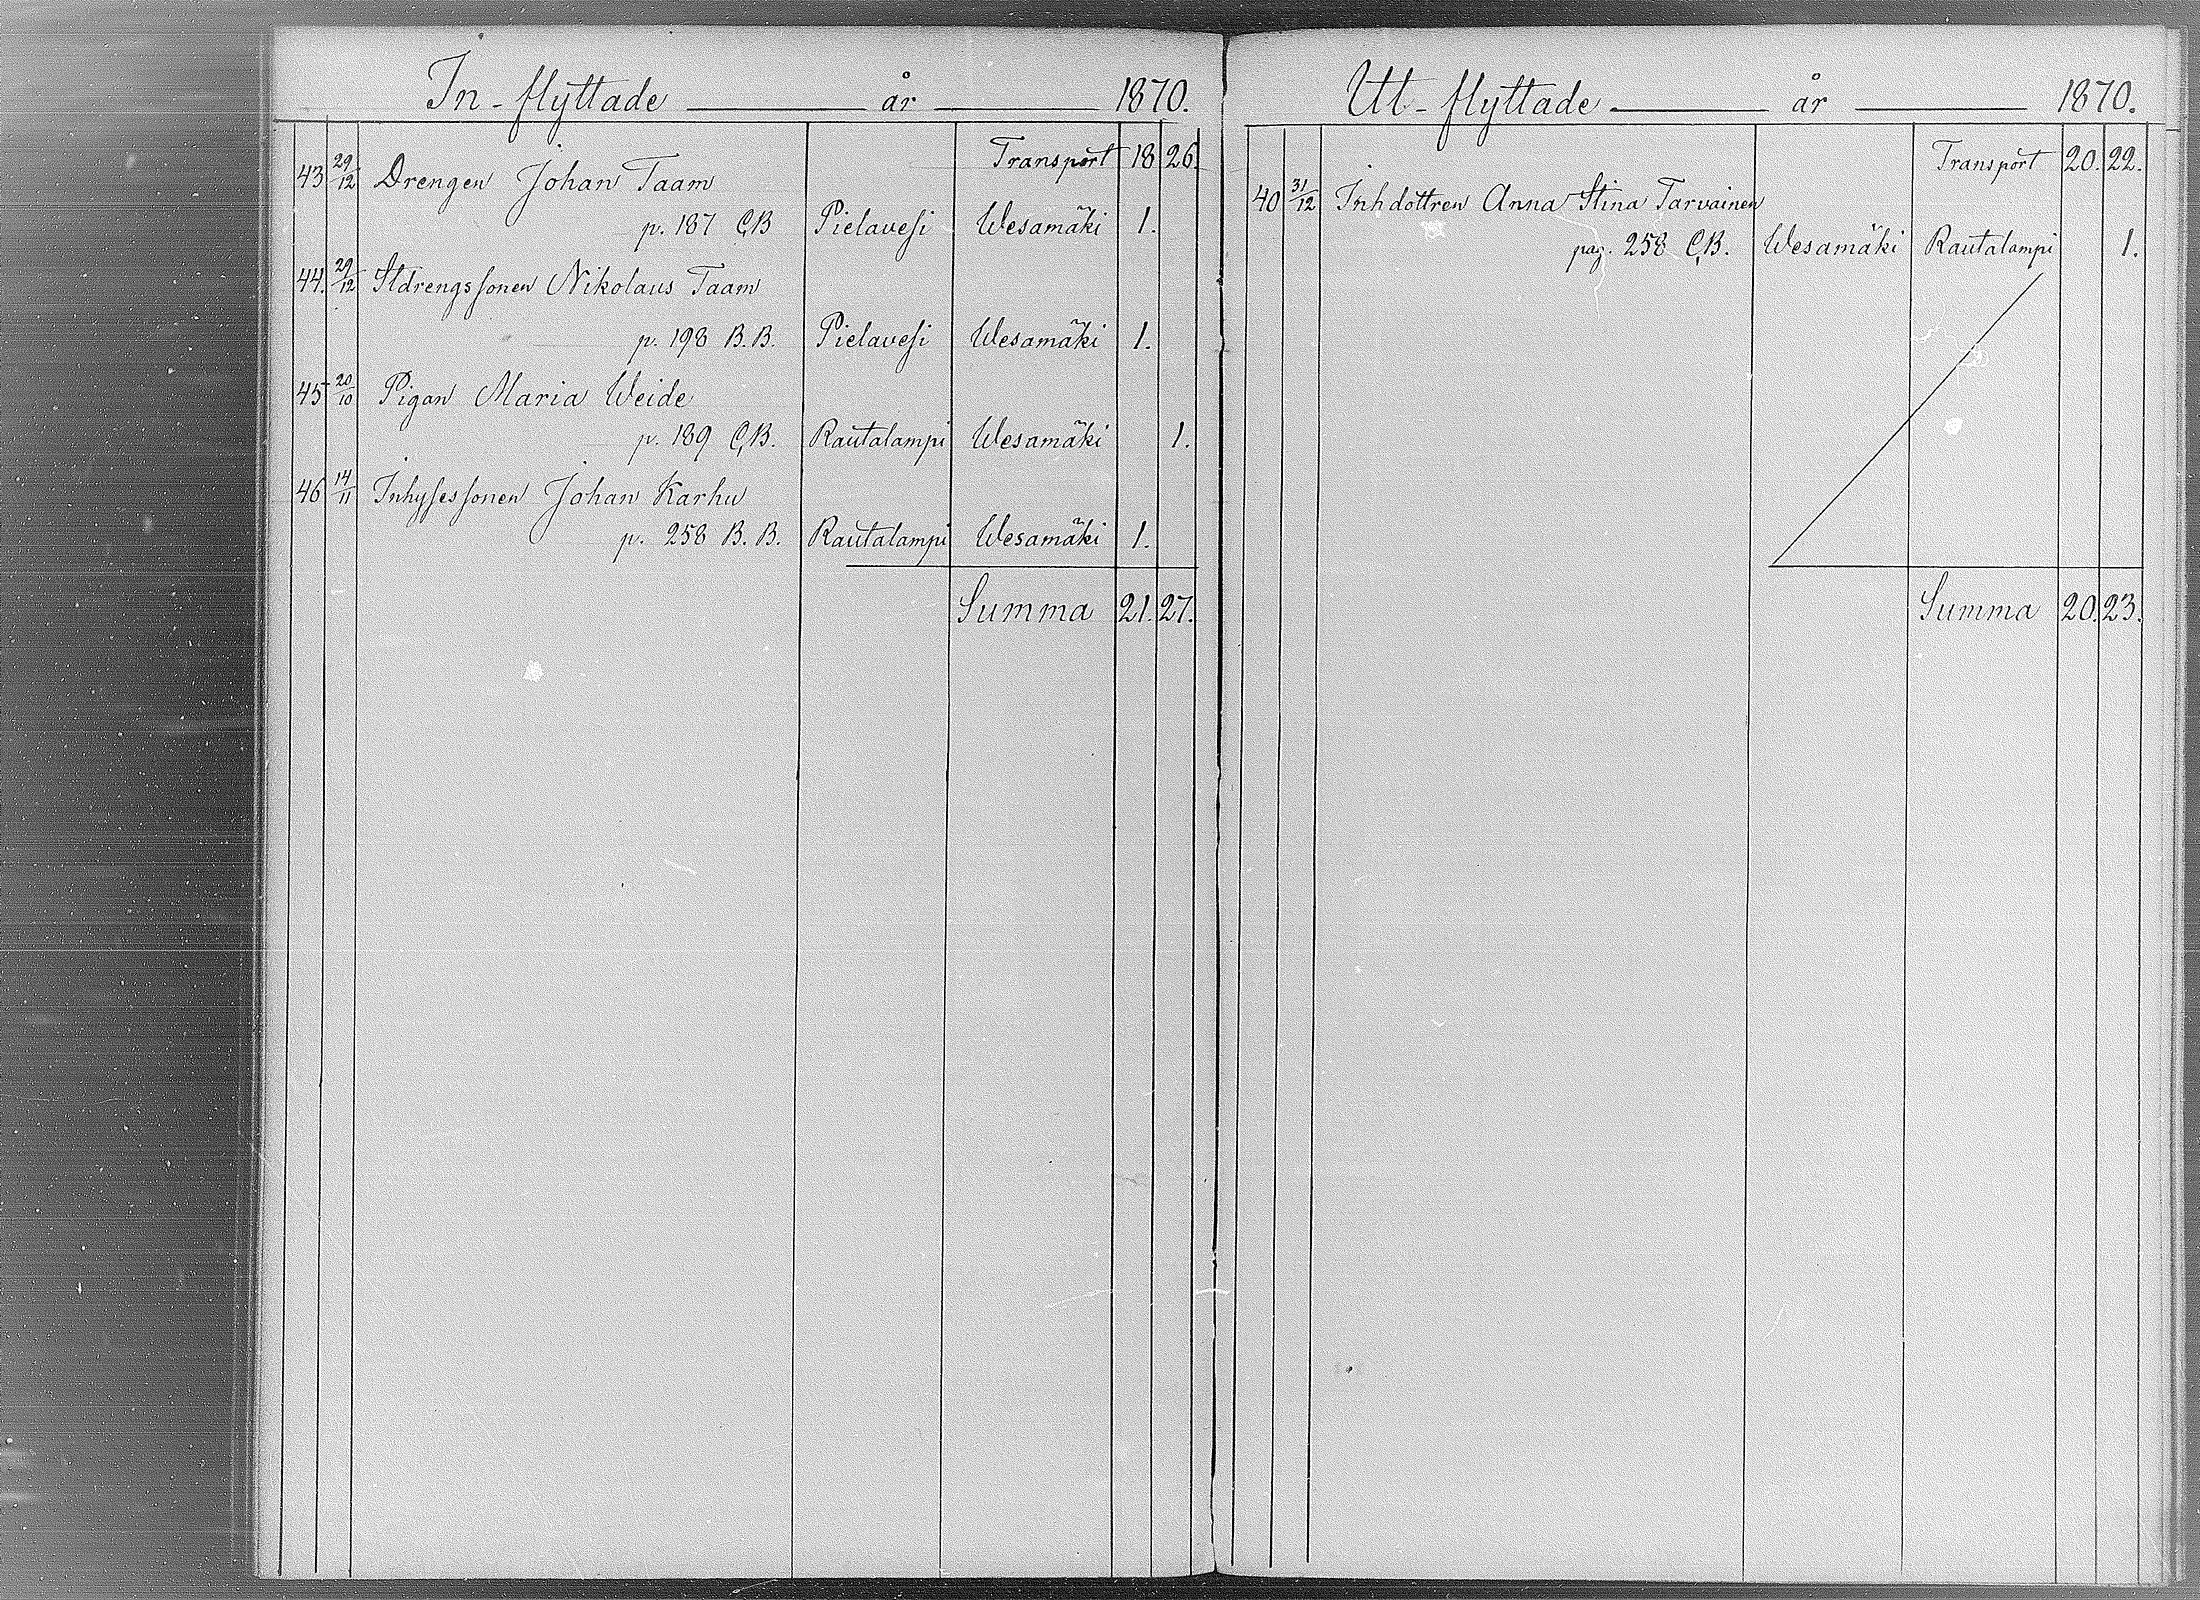 In-flyttade år 1870.
Transport 18 26.
43 29/12 Drengen Johan Taam
p. 187 C,B Pielavesi Wesamäki 1.
44. 29/12 Stdrengssonen Nikolaus Taam
p. 198 B.B. Pielavesi Wesamäki 1.
45 20/10 Pigan Maria Weide
p. 189 C,B. Rautalampi Wesamäki 1.
46 14/11 Inhysessonen Johan Karhu
p. 258 B.B. Rautalampi Wesamäki 1.
Summa 21. 27.
Ut-flyttade år 1870.
Transport 20. 22.
40 31/12 Inhdottren Anna Stina Tarvainen
pag. 258 C,B. Wesamäki Rautalampi 1.
Summa 20. 23.